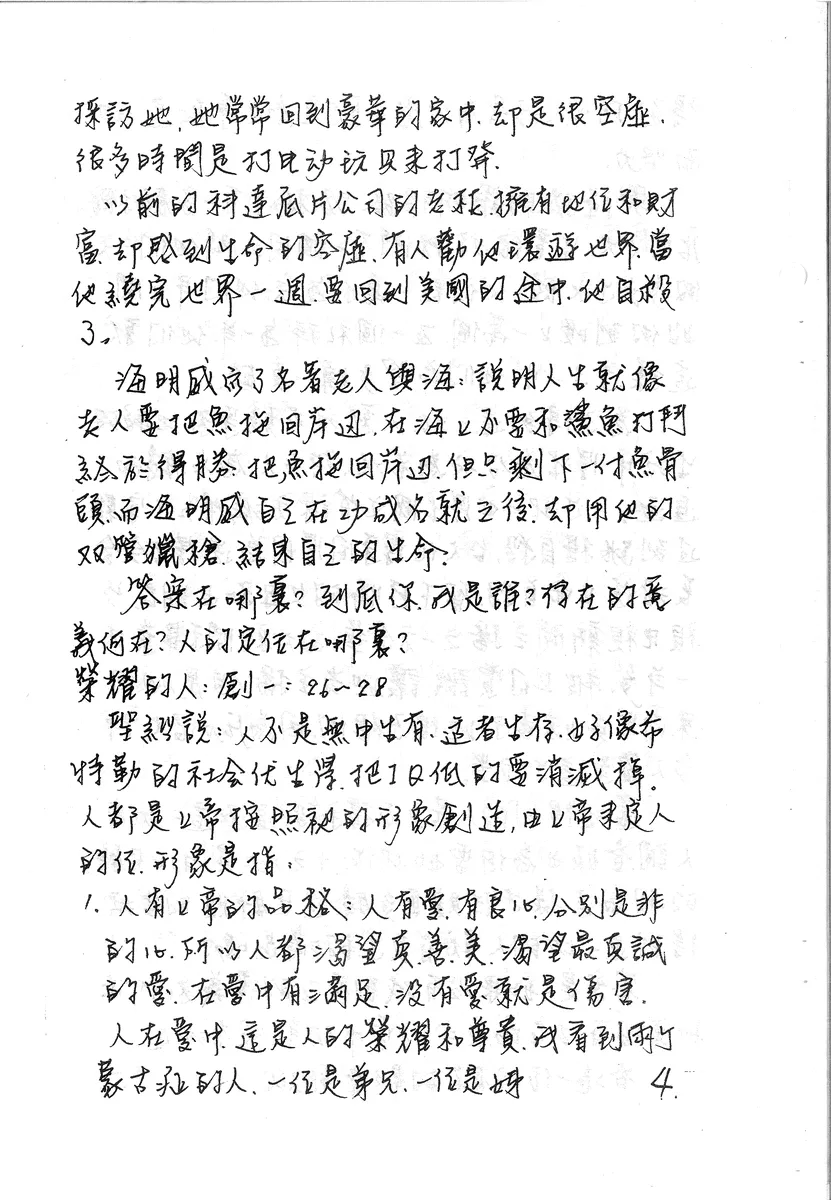 採訪她,她常常回到豪華的家中,却是很空虛,
很多時間是打电动玩具来打發.
以前的科達底片公司的老板,擁有地位和財
富,却感到生命的空虛,有人勸他環遊世界,當
他繞完世界一週,要回到美國的途中,他自殺
了。
海明威寫了名著老人與海:說明人生就像
老人要把魚拖回岸辺,在海上不要和鯊魚打鬥
終於得勝,把魚拖回岸辺,但只剩下一付魚骨
頭,而海明威自己在功成名就之後,却用他的
双管獵槍,結束自己的生命.
答案在哪裏?到底你.我是誰?存在的意
義何在?人的定位在哪裏?
榮耀的人:創一:26~28
聖經說:人不是無中生有.适者生存.好像希
特勒的社会优生學,把IQ低的要消滅掉。
人都是上帝按照祂的形象創造,由上帝来定人
的位.形象是指:
1. 人有上帝的品格:人有愛.有良心.分別是非
的心.所以人都渴望真.善.美.渴望最真誠
的愛.在愛中有滿足.沒有愛就是傷害.
人在愛中.這是人的榮耀和尊貴.我看到兩个
蒙古症的人.一位是弟兄.一位是姊 4.